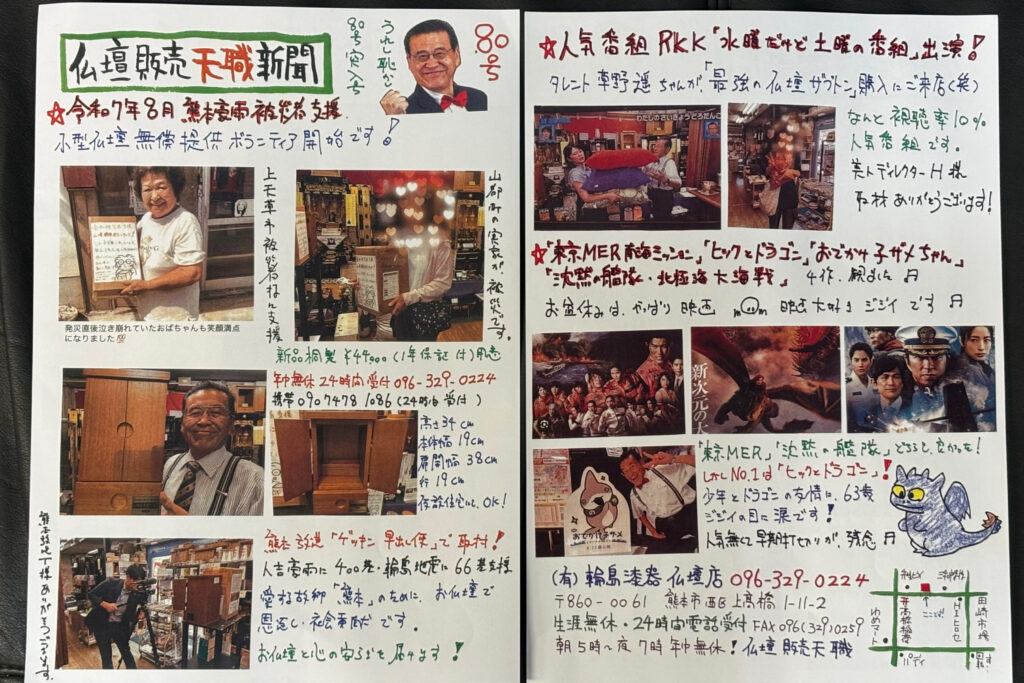 仏壇販売天職新聞
うれし恥かし
80号突入号
80号
☆令和7年8月 熊本豪雨被災者支援
小型仏壇無償提供ボランティア開始です!
上天草市被災者様に支援
山都町の実家が被災です。
発災直後泣き崩れていたおばちゃんも笑顔満点
になりました💯
新品桐製 ¥44000 (1年保証付)用意
年中無休24時間受付 096-329-0224
携帯09074781086(24時間受付)
高さ34cm
本体幅19cm
扉開幅38cm
行19cm
仮設住宅にもOK!
熊本放送「ゲツキン早出し便」で取材!
人吉豪雨に400基・輪島地震に66基支援
愛する故郷「熊本」のために、お仏壇で
恩返し・社会貢献です。
お仏壇と心の安らぎを届けます!
様ありがとうございます。
☆人気番組 RKK「水曜だけど土曜の番組」出演!
タレント草野遥ちゃんが、「最強の仏壇ザブトン」購入にご来店(笑)
わたしのさいきょうどろだんご
なんと視聴率10%
人気番組です。
美人ディレクターH様
取材ありがとうございます!
☆「東京MER 南海ミッション」「ヒックとドラゴン」「おでかけ子ザメちゃん」
「沈黙の艦隊・北極海大海戦」 4作、観ました
お盆休みは、やっぱり映画 映画大好きジジイです
新次元の
「東京MER」「沈黙の艦隊」どちらも良かった!
しかしNo.1は「ヒックとドラゴン」!
少年とドラゴンの友情に、63歳
ジジイの目に涙です!
人気無くて早期打切りが残念
おでかけ子ザメ
(有)輪島漆器仏壇店 096-329-0224
〒860-0061 熊本市西区上高橋1-11-2
生涯無休・24時間電話受付 FAX096(329)0259
朝5時~夜7時年中無休!仏壇販売天職
高橋稲荷
ここだ!
田崎市場